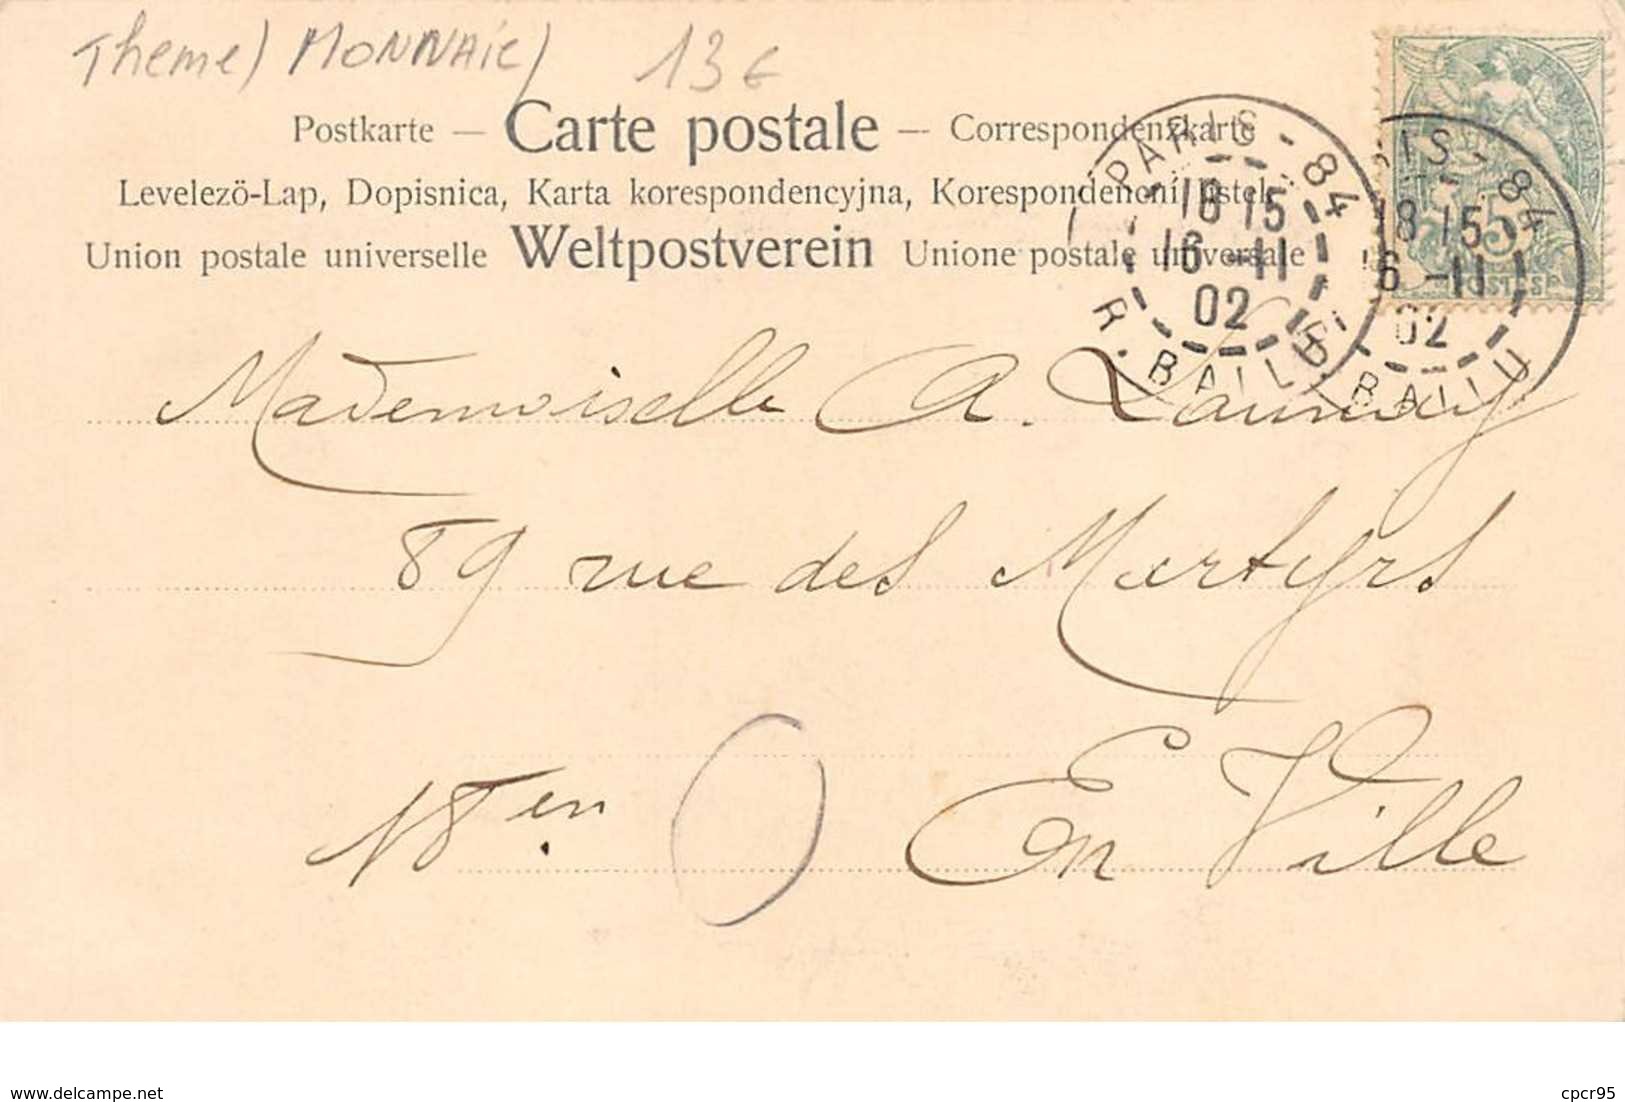 Theme) MONNAiE) 13€
Postkarte — Carte postale — Correspondenzkarte
Levelezö-Lap, Dopisnica, Karta korespondencyjna, Korespondenční lístek
Union postale universelle Weltpostverein Unione postale universale
PARIS - 84
18 15
16 - 11
02
R. BALLU
RIS - 84
18 15
16 - 11
02
BALLU
5
POSTES
Mademoiselle A. Launay
89 rue des Martyrs
En Ville
www.delcampe.net
cpcr95